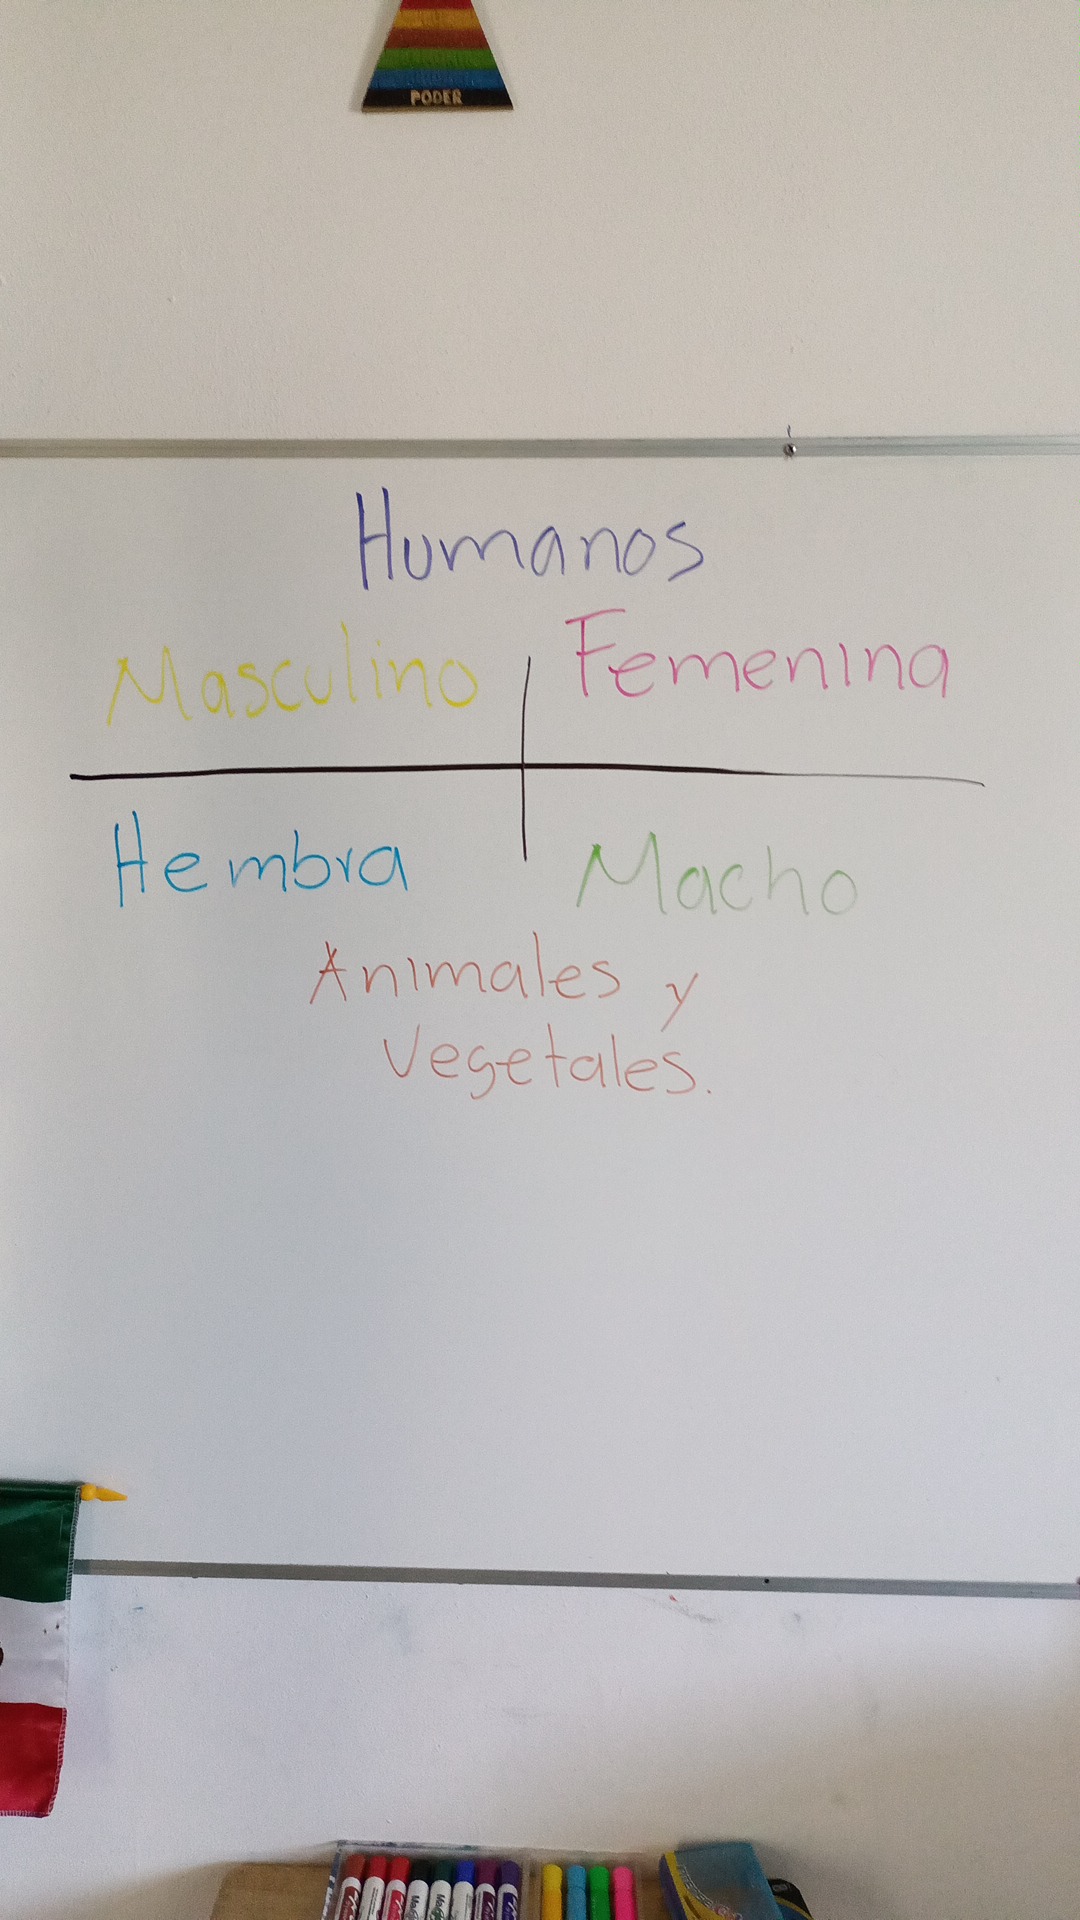 PODER
Humanos
Masculino Femenina
Hembra Macho
Animales y
Vegetales.